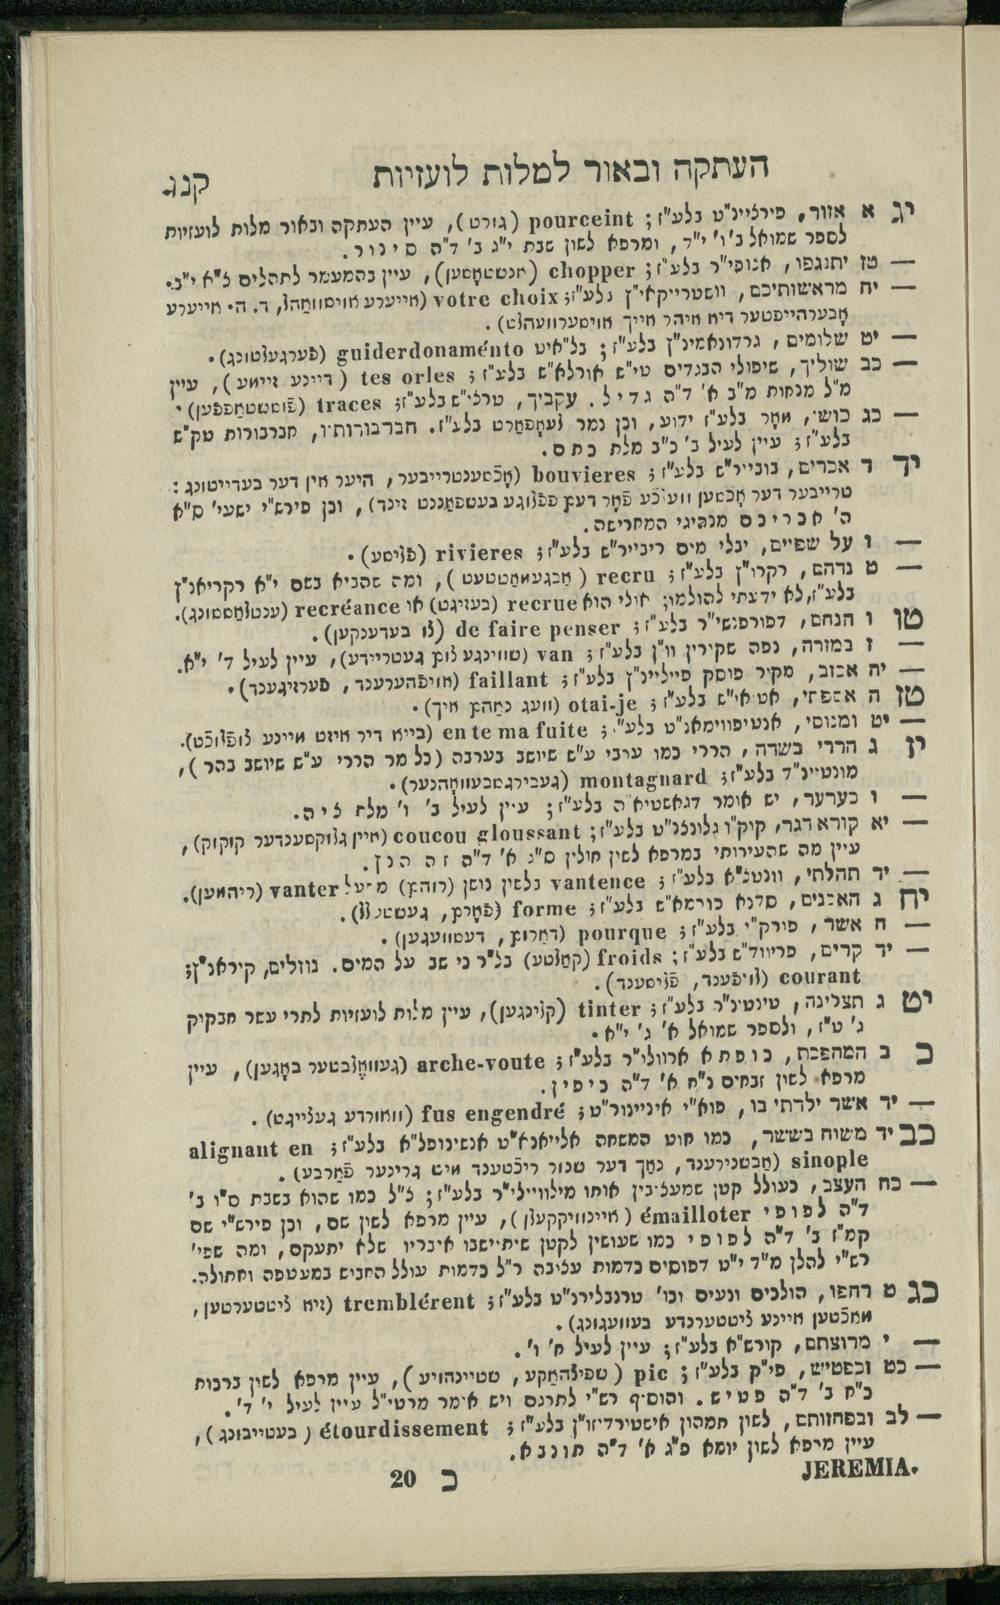 העתקה ובאור למלות לועזיות קנג
יג א אזור, פירצײנ"ט בלע"ז; pourceint (גורט), עיין העתקה ובאור מלות לועזיות
לספר שמואל ב' ו' י"ד, ומרפא לשון שבת י"ג ב' ד"ה סינור.
— טז יתנגפו, אצופי"ר בלע"ז; chopper (אנשטאָסען), עיין בהמעמר לתהלים צ"א י"ב.
— יח מראשותיכם, וושטרייקאי"ץ בלע"ז; votre choix (אייערע אויסוואַהל, ד. ה. אייערע
אָבערהייפטער דיא איהר אייך אויסערוועהלט).
— יט שלומים, גרדונאמינ"ץ בלע"ז; בל"איט guiderdonaménto (פערגעלטונג).
— כב שוליך, שיפולי הבגדים טי"ש אורלא"ש בלע"ז; tes orles (דיינע זיימע), עיין
מ"ל מנחות מ"ב א' ד"ה גדיל. עקביך, טרצי"ש בלע"ז; traces (פוסשטאַפפען).
— כג כושי, מאָר בלע"ז ידוע, וכן נמר לעאָפּאַרט בלע"ז. חברבורותיו, חברבורות טק"ש
בלע"ז; עיין לעיל ב' כ"ב מלת כתם.
יד ד אכרים, בוביירי"ש בלע"ז; bouvieres (אָכסענטרייבער, היער אין דער בעדייטונג:
טרייבער דער אָכסען וועלכע פֿאָר דעם פפלוגע בעשפּאַננט זינד), וכן פירש"י ישעי' ס"א
ה' אכריכם מנהיגי המחרישה.
— ו על שפיים, יבלי מים ריביירי"ש בלע"ז; rivieres (פליסע).
— ט נדהם, רקרו"ן בלע"ז; recru (אַבגעמאַטטעט), ומה שהביא בשם י"א רקריאנ"ץ
בלע"ז, לא ידעתי להולמו; אולי הוא recrue (בעזיגט) או recréance (ענטלאַססונג).
טו ו הנחם, דפורפנשי"ר בלע"ז; de faire penser (צו בעדענקען).
— ז במזרה, נפה שקורין וו"ן בלע"ז; van (שווינגע צום געטריידע), עיין לעיל ד' י"א.
— יח אכזב, מקור פוסק פיילײנ"ץ בלע"ז; faillant (אויפהערענד, פערזיגענד).
טז ה אספתי, אטיאי"ש בלע"ז; otai-je (וועג נאַהם איך).
— יט ומנוסי, אנטיפווימאנ"ט בלע"ז; en te ma fuite (בייא דיר איזט מיינע צופלוכט).
יז ג הררי בשדה, הררי כמו ערבי ע"ש שיושב בערבה (כל מר הררי ע"ש שיושב בהר),
מונטיינ"ד בלע"ז; montagnard (געבירגסבעוואָהנער).
— ו כערער, יש אומר דגאשטיא"ה בלע"ז; עיין לעיל ב' ו' מלת ציה.
— יא קורא דגר, קוק"ו גלונצנ"ט בלע"ז; coucou gloussant (איין גלוקסענדער קוקוק),
עיין מה שהעירותי במרפא לשון חולין ס"ג א' ד"ה זה הנץ.
— יד תהלתי, וונטנצ"א בלע"ז; vantence בלשון נושן (רוהם) מפעל vanter (ריהמען).
יח ג האבנים, סדנא פורמא"ש בלע"ז; forme (פֿאָרם, געשטעלל).
— ח אשר, פורק"י בלע"ז; pourque (דאַרום, דעסוועגען).
— יד קרים, פריווד"ש בלע"ז; froids (קאַלטע) בל"ר כי שב על המים. נוזלים, קוראנ"ץ;
courant (לויפענד, פליסענד).
יט ג תצלינה, טינטינ"ר בלע"ז; tinter (קלינגען), עיין מלות לועזיות לתרי עשר חבקוק
ג' ט"ז, ולספר שמואל א' ג' י"א.
כ ב המהפכת, כופתא ארוולי"ר בלע"ז; arche-voute (געוועלבטער באָגען), עיין
מרפא לשון זבחים נ"ח א' ד"ה כיפין.
— יד אשר ילדתי בו, פוא"י אינײנור"ט; fus engendré (וואורדע געצייגט).
כב יד משוח בששר, כמו חוט המשחה אלייאנא"ט אנשינופל"א בלע"ז; alignant en
sinople (אָבשנירענד, נאַך דער שנור ריכטענד מיט גרינער פֿאַרבע).
— כח העצב, כעולל קטן שמעצבין אותו מילוויילי"ר בלע"ז; צ"ל כמו שהוא בשבת ס"ו ב'
ד"ה לפופי émailloter (איינוויקקעלן), עיין מרפא לשון שם, וכן פירש"י שם
קמ"ז ב' ד"ה לפופי כמו שעושין לקטן שיתיישבו איבריו שלא יתעקם, ומה שפי'
רש"י להלן מ"ד י"ט דפוסים כדמות עציבה ר"ל כדמות עולל החביש במעטפה וחתולה.
כג ט רחפו, הולכים ונעים וכו' טרנבלירנ"ט בלע"ז; tremblérent (זיא ציטטערטען,
מאַכטען איינע ציטטערנדע בעוועגונג).
— י מרוצתם, קורש"א בלע"ז; עיין לעיל ח' ו'.
— כט וכפטיש, פי"ק בלע"ז; pic (שפּיצהאַקע, שטיינהויע), עיין מרפא לשון ברכות
כ"ח ב' ד"ה פטיש. והוסיף רש"י לתרגם ויש אומר מרטי"ל עיין לעיל י' ד'.
— לב ובפחזותם, לשון תמהון אישטירדיזו"ן בלע"ז; étourdissement (בעטייבונג),
עיין מרפא לשון יומא פ"ג א' ד"ה תונבא.
JEREMIA. כ 20